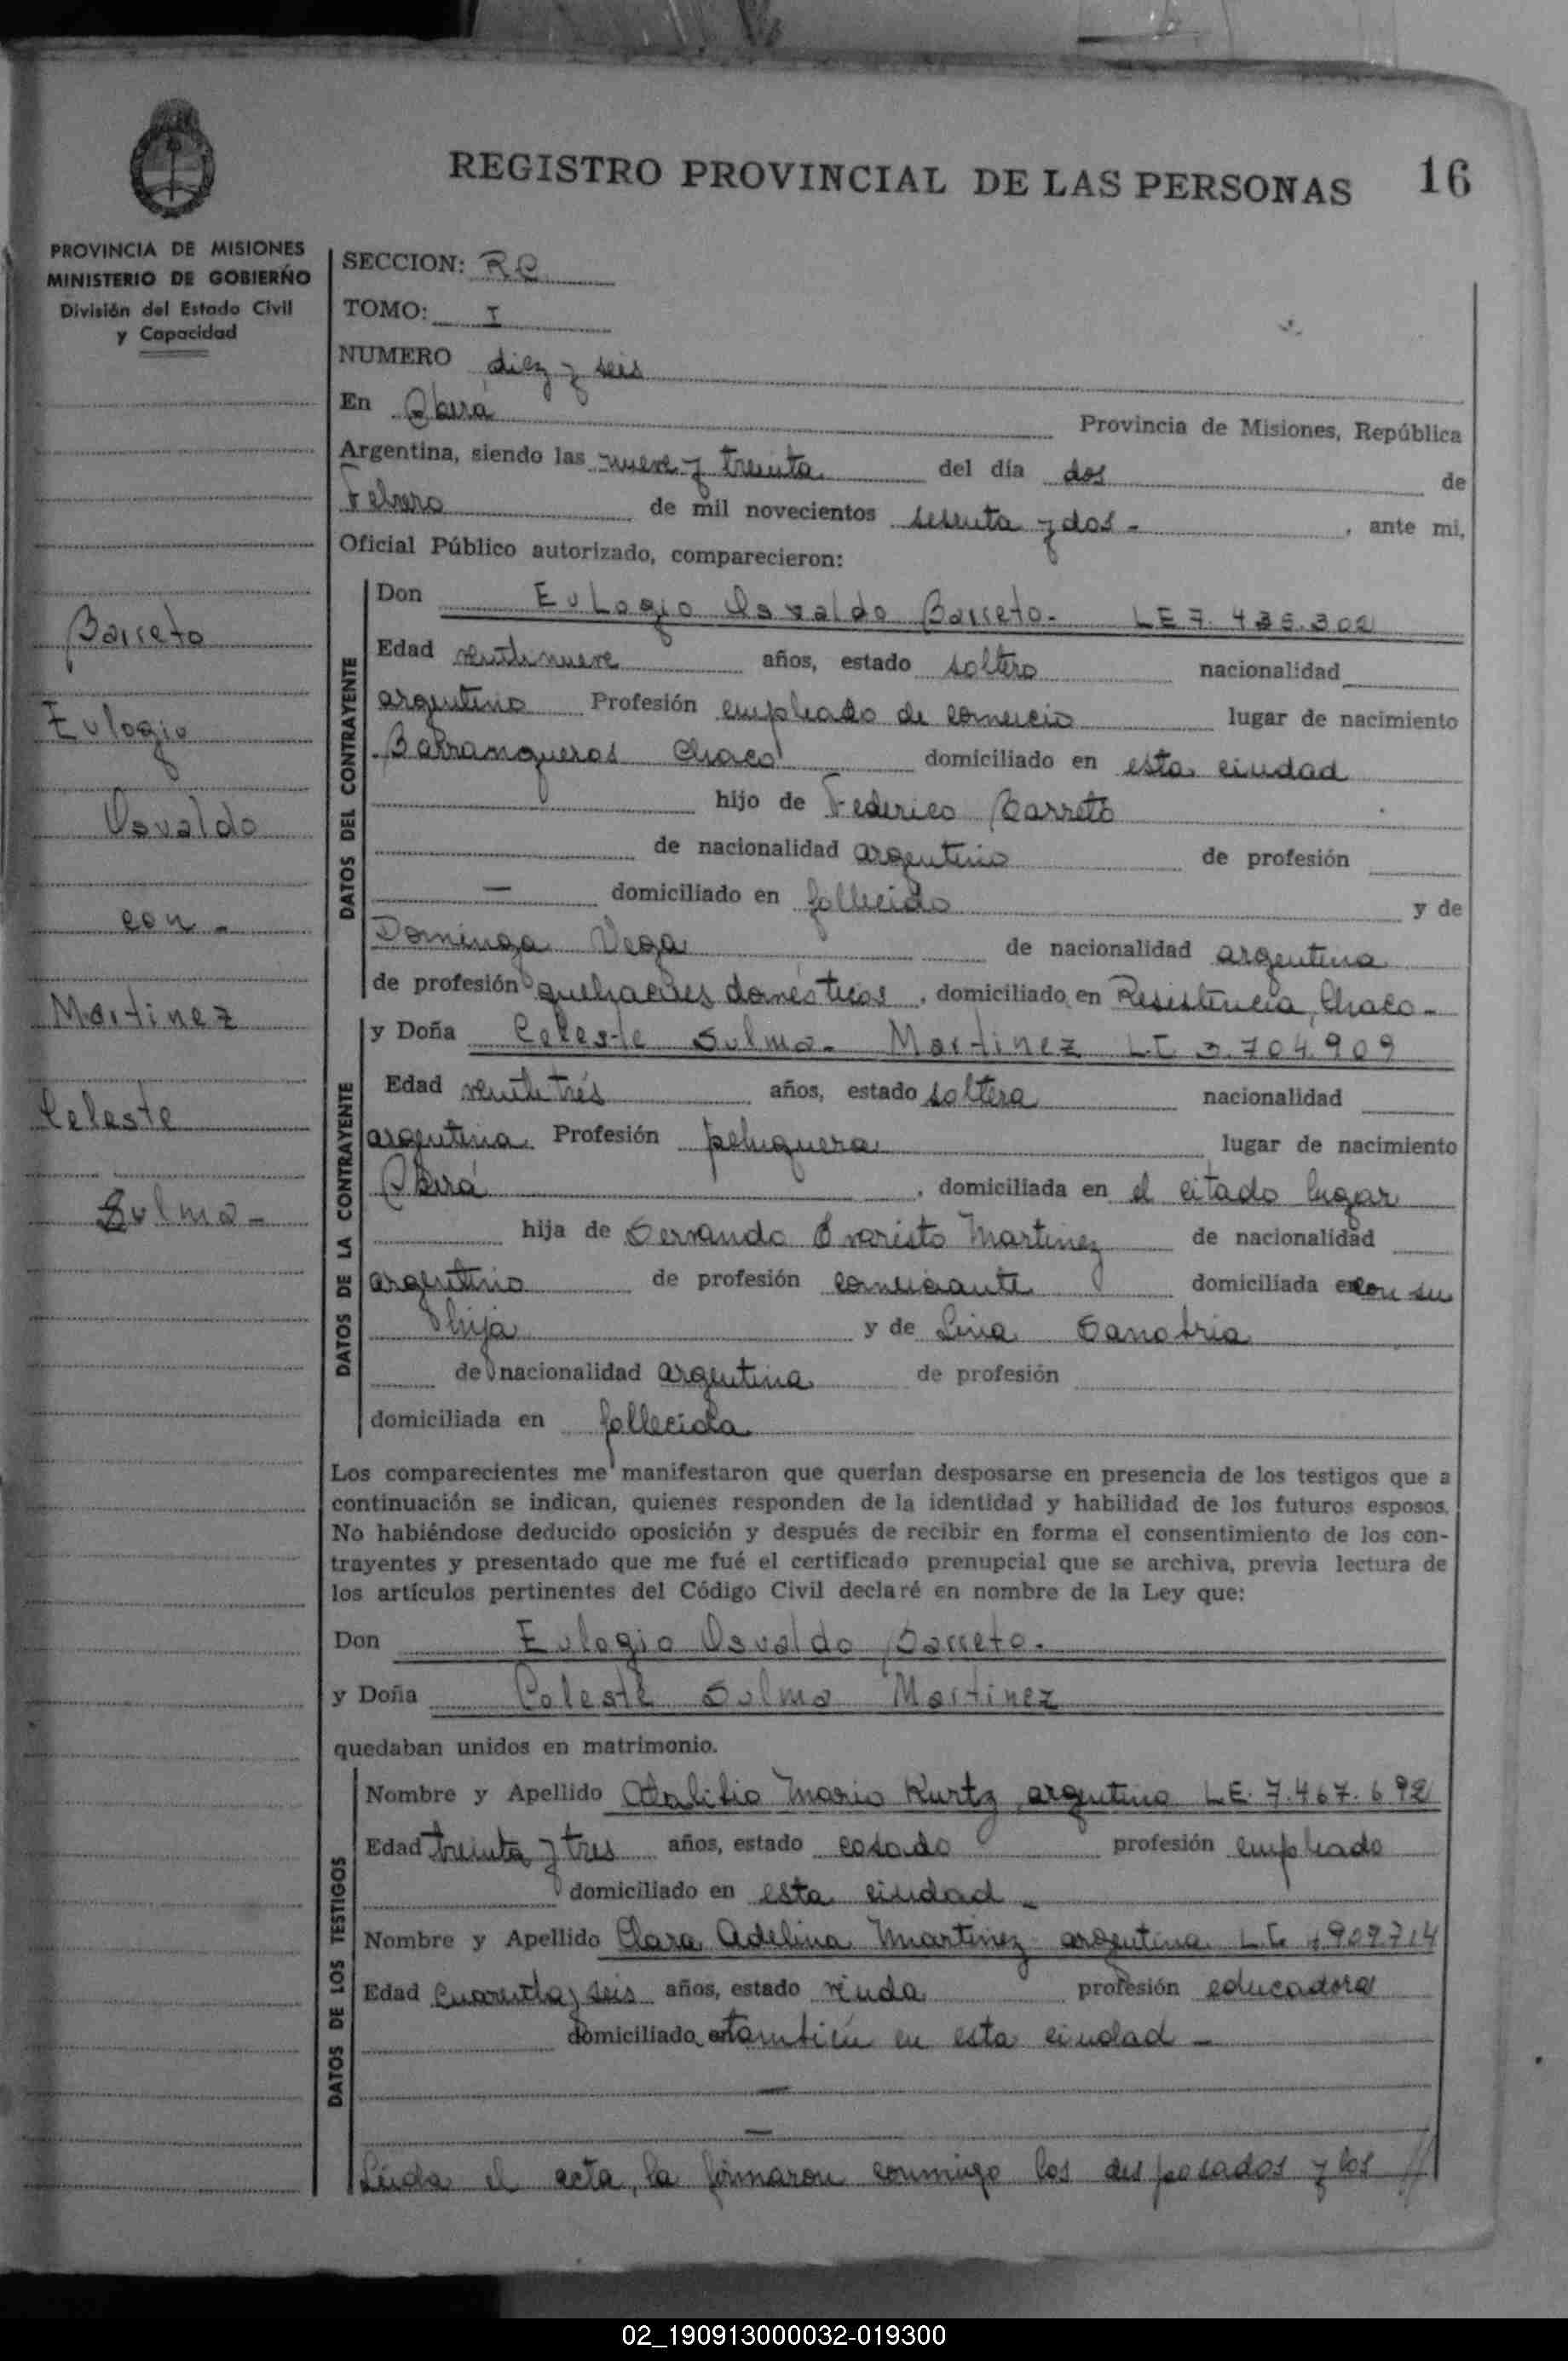 REGISTRO PROVINCIAL DE LAS PERSONAS 16
PROVINCIA DE MISIONES
MINISTERIO DE GOBIERNO
División del Estado Civil
y Capacidad
Barreto
Eulogio
Osvaldo
con -
Martinez
Celeste
Sulma -
SECCION: RC
TOMO: I
NUMERO diez y seis
En Oberá Provincia de Misiones, República
Argentina, siendo las nueve y treinta del día dos de
Febrero de mil novecientos sesenta y dos - , ante mi,
Oficial Público autorizado, comparecieron:
DATOS DEL CONTRAYENTE
Don Eulogio Osvaldo Barreto - LE 7.435.302
Edad veintinueve años, estado soltero nacionalidad
argentino Profesión empleado de comercio lugar de nacimiento
Barranqueras Chaco domiciliado en esta ciudad
hijo de Federico Barreto
de nacionalidad argentino de profesión
— domiciliado en fallecido y de
Dominga Vega de nacionalidad argentina
de profesión quehaceres domésticos , domiciliado en Resistencia, Chaco -
DATOS DE LA CONTRAYENTE
y Doña Celeste Sulma - Martinez LC 3.704.909
Edad veintitrés años, estado soltera nacionalidad
argentina Profesión peluquera lugar de nacimiento
Oberá , domiciliada en el citado lugar
hija de Servando Evaristo Martinez de nacionalidad
argentino de profesión comerciante domiciliada con su
hija y de Lina
de nacionalidad argentina de profesión
domiciliada en fallecida
Los comparecientes me manifestaron que querían desposarse en presencia de los testigos que a
continuación se indican, quienes responden de la identidad y habilidad de los futuros esposos.
No habiéndose deducido oposición y después de recibir en forma el consentimiento de los con-
trayentes y presentado que me fué el certificado prenupcial que se archiva, previa lectura de
los artículos pertinentes del Código Civil declaré en nombre de la Ley que:
Don Eulogio Osvaldo Barreto -
y Doña Celeste Sulma Martinez
quedaban unidos en matrimonio.
DATOS DE LOS TESTIGOS
Nombre y Apellido Mario Kurtz argentino LE. 7.467.692
Edad treinta y tres años, estado casado profesión empleado
domiciliado en esta ciudad -
Nombre y Apellido Clara Adelina Martinez argentina LC
Edad cuarenta y seis años, estado viuda profesión educadora
domiciliado también en esta ciudad -
—
—
Leída el acta, la firmaron conmigo los desposados y los //
02_190913000032-019300